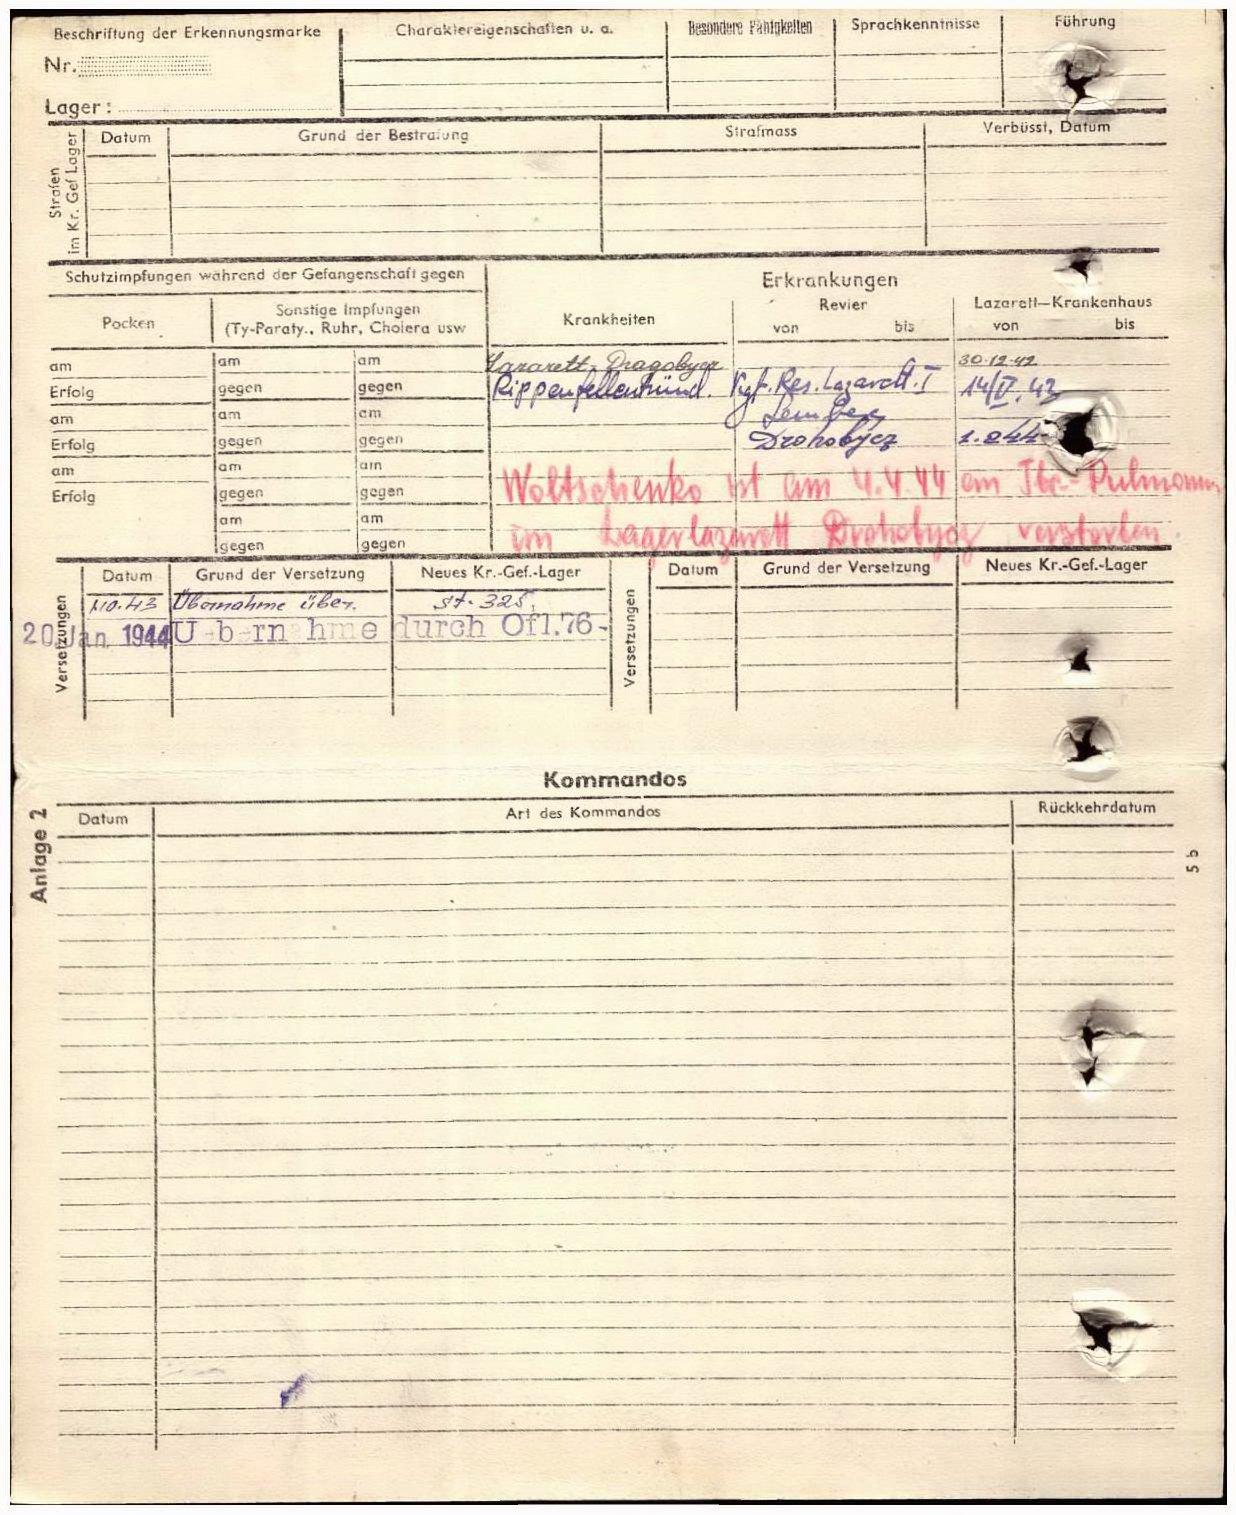 Beschriftung der Erkennungsmarke
Charaktereigenschaften u. a.
Besondere Fähigkeiten
Sprachkenntnisse
Führung
Nr.
Lager :
Strafen
im Kr. Gef Lager
Datum
Grund der Bestrafung
Strafmass
Verbüsst, Datum
Schutzimpfungen während der Gefangenschaft gegen
Erkrankungen
Pocken
Sonstige Impfungen
(Ty-Paraty., Ruhr, Cholera usw
Krankheiten
Revier
von bis
Lazarett—Krankenhaus
von bis
am am am Lazarett Dragobycz 30.12.42
Erfolg gegen gegen Rippenfellentzünd. Kgf. Res. Lazarett. I 14/IV. 43
am am am Lemberg
Erfolg gegen gegen Drohobycz
am am am
Erfolg gegen gegen Woltschenko ist am 4.4.44 an Tbc-
am am im Lagerlazarett Drohobycz verstorben
gegen gegen
Versetzungen
Datum Grund der Versetzung Neues Kr.-Gef.-Lager
Übernahme über. St. 325.
20. Jan. 1944 Uebernahme durch Ofl.76-
Versetzungen
Datum Grund der Versetzung Neues Kr.-Gef.-Lager
Kommandos
Anlage 2
Datum Art des Kommandos Rückkehrdatum
5 b